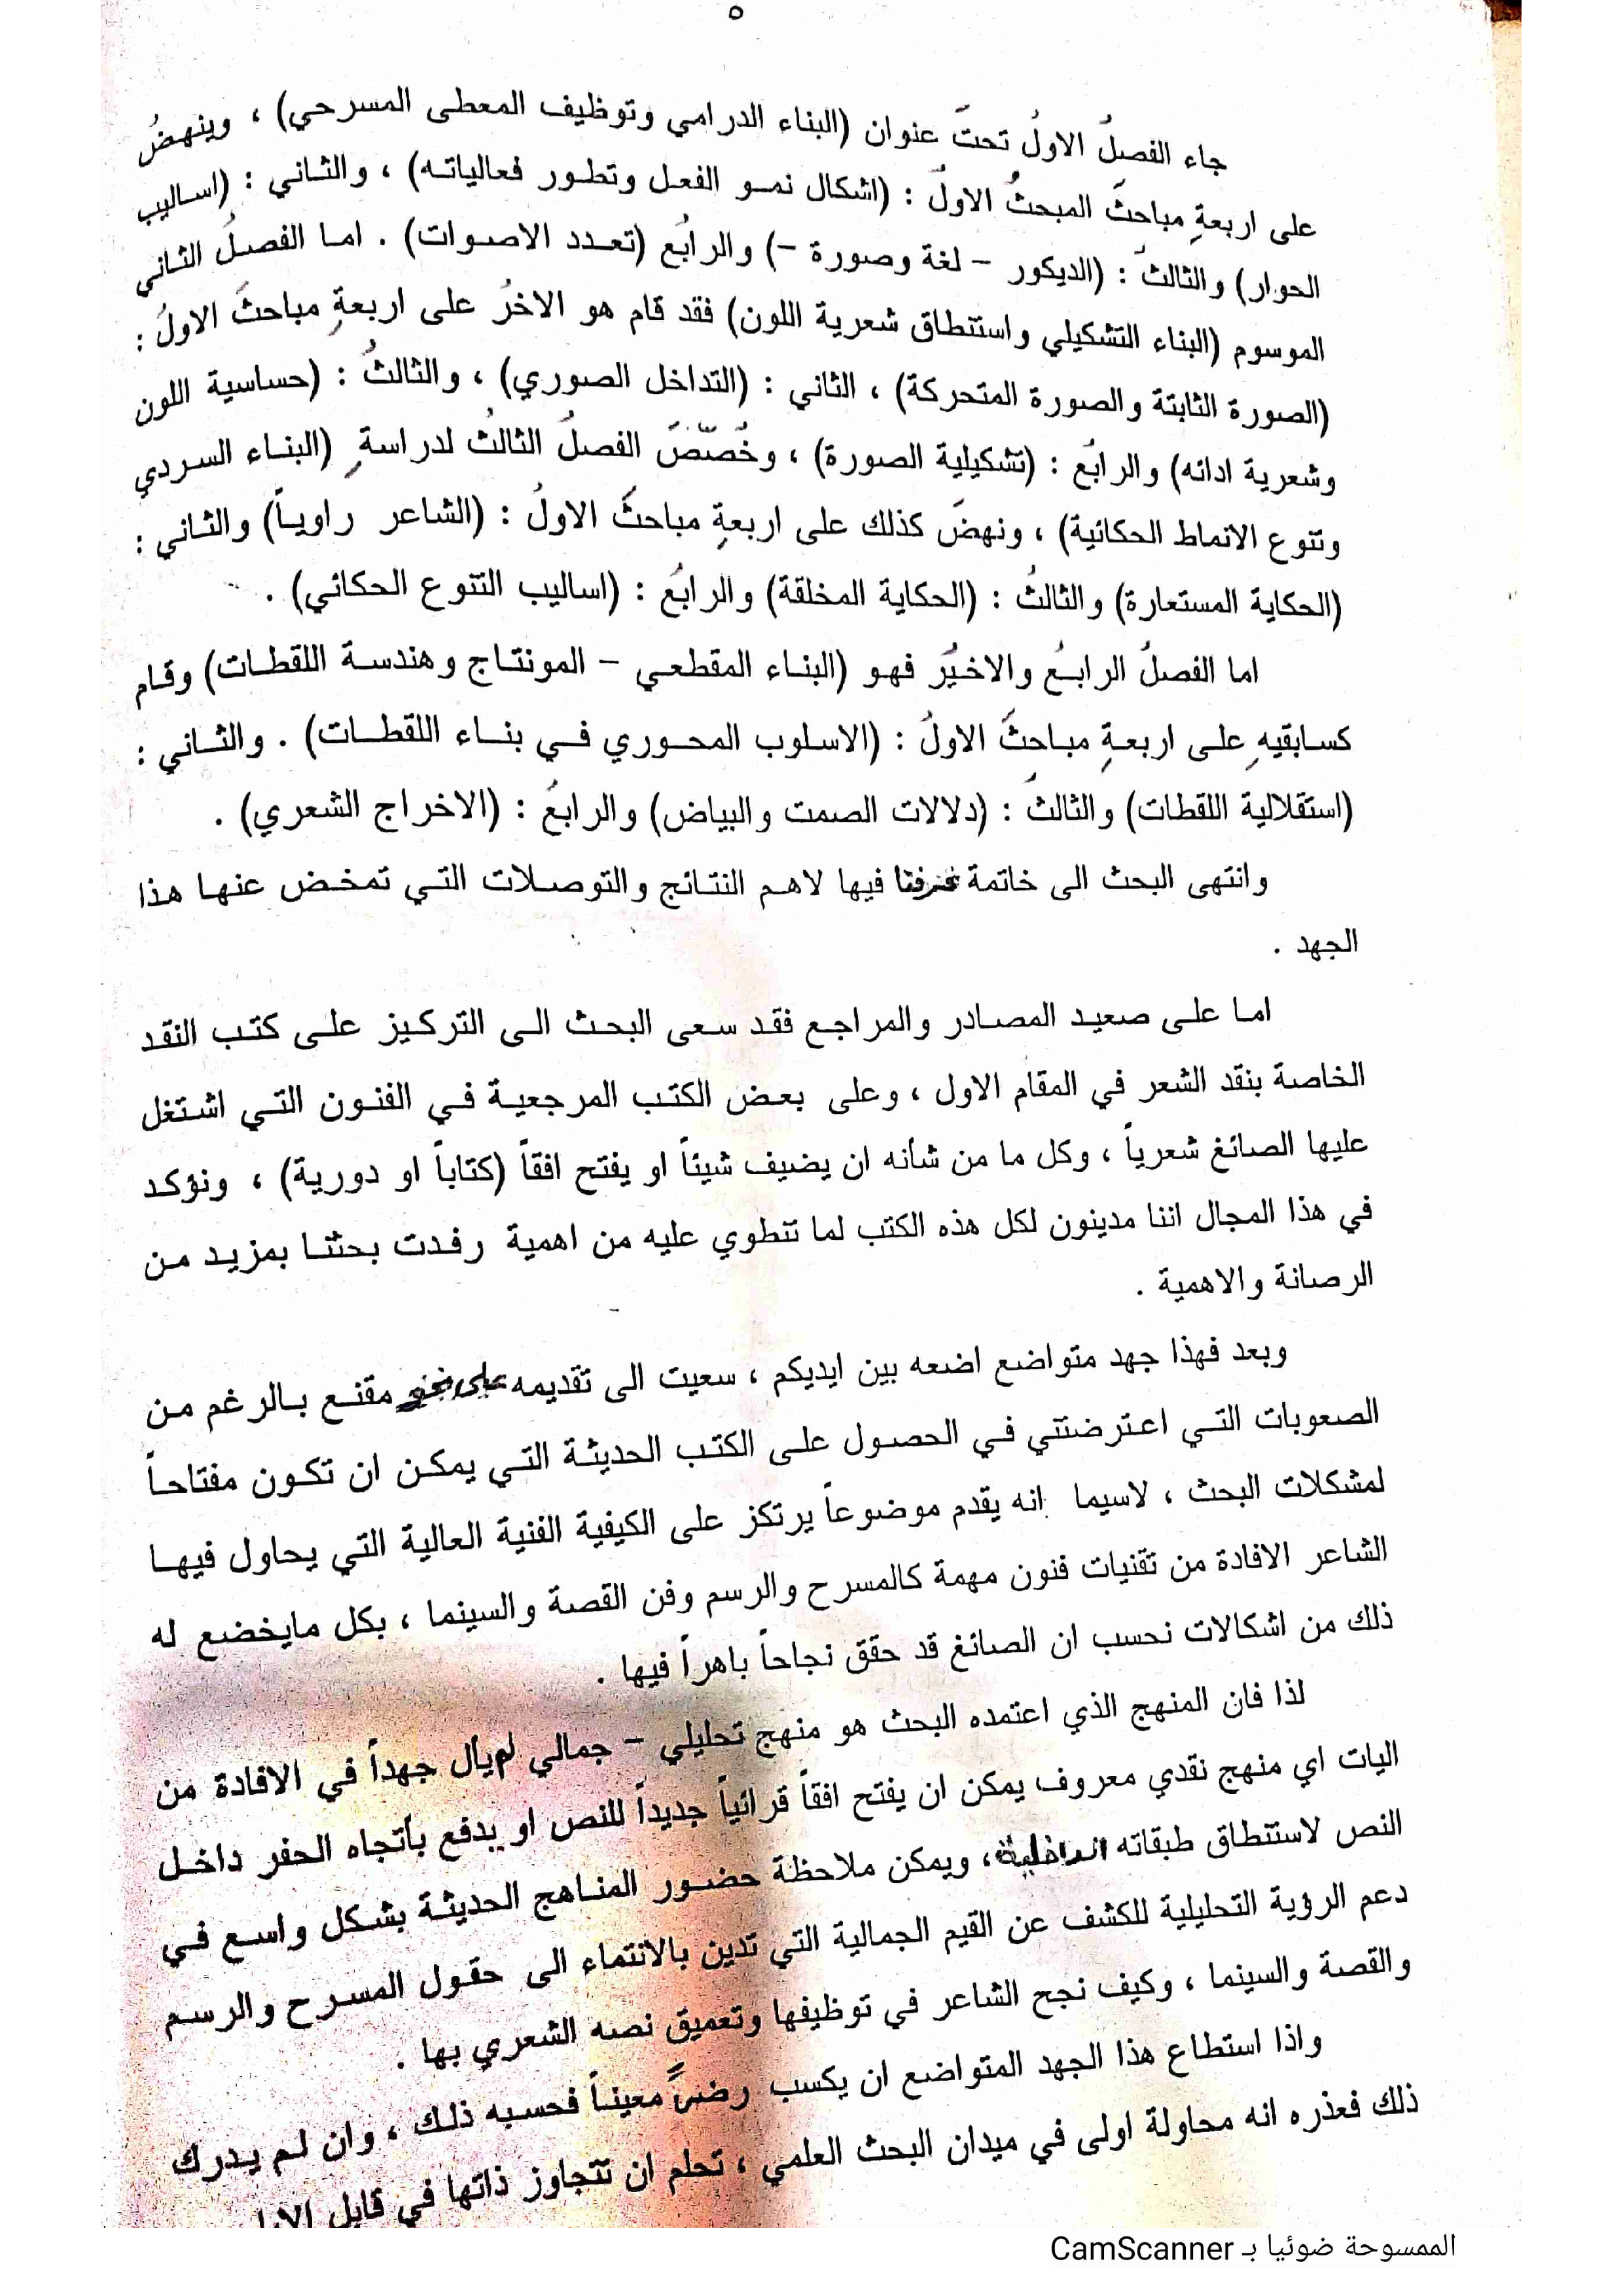 ٥
جاء الفصلُ الاولُ تحتَ عنوان (البناء الدرامي وتوظيف المعطى المسرحي) ، وينهضُ
على اربعةِ مباحثَ المبحثُ الاولُ : (اشكال نمو الفعل وتطور فعالياته) ، والثاني : (اساليب
الحوار) والثالثُ : (الديكور – لغة وصورة –) والرابُع (تعدد الاصوات) . اما الفصلُ الثاني
الموسوم (البناء التشكيلي واستنطاق شعرية اللون) فقد قام هو الاخرُ على اربعةِ مباحثَ الاولُ :
(الصورة الثابتة والصورة المتحركة) ، الثاني : (التداخل الصوري) ، والثالثُ : (حساسية اللون
وشعرية ادائه) والرابُع : (تشكيلية الصورة) ، وخُصّصَ الفصلُ الثالثُ لدراسةِ (البناء السردي
وتنوع الانماط الحكائية) ، ونهضَ كذلك على اربعةِ مباحثَ الاولُ : (الشاعر راوياً) والثاني :
(الحكاية المستعارة) والثالثُ : (الحكاية المخلقة) والرابُع : (اساليب التنوع الحكائي) .
اما الفصلُ الرابعُ والاخيُر فهو (البناء المقطعي – المونتاج وهندسة اللقطات) وقام
كسابقيهِ على اربعةِ مباحثَ الاولُ : (الاسلوب المحوري في بناء اللقطات) . والثاني :
(استقلالية اللقطات) والثالثُ : (دلالات الصمت والبياض) والرابعُ : (الاخراج الشعري) .
وانتهى البحث الى خاتمة فيها لاهم النتائج والتوصلات التي تمخض عنها هذا
الجهد .
اما على صعيد المصادر والمراجع فقد سعى البحث الى التركيز على كتب النقد
الخاصة بنقد الشعر في المقام الاول ، وعلى بعض الكتب المرجعية في الفنون التي اشتغل
عليها الصائغ شعرياً ، وكل ما من شأنه ان يضيف شيئاً او يفتح افقاً (كتاباً او دورية) ، ونؤكد
في هذا المجال اننا مدينون لكل هذه الكتب لما تنطوي عليه من اهمية رفدت بحثنا بمزيد من
الرصانة والاهمية .
وبعد فهذا جهد متواضع اضعه بين ايديكم ، سعيت الى تقديمه على نحو مقنع بالرغم من
الصعوبات التي اعترضتني في الحصول على الكتب الحديثة التي يمكن ان تكون مفتاحاً
لمشكلات البحث ، لاسيما انه يقدم موضوعاً يرتكز على الكيفية الفنية العالية التي يحاول فيها
الشاعر الافادة من تقنيات فنون مهمة كالمسرح والرسم وفن القصة والسينما ، بكل مايخضع له
ذلك من اشكالات نحسب ان الصائغ قد حقق نجاحاً باهراً فيها .
لذا فان المنهج الذي اعتمده البحث هو منهج تحليلي – جمالي لم يأل جهداً في الافادة من
اليات اي منهج نقدي معروف يمكن ان يفتح افقاً قرائياً جديداً للنص او يدفع بأتجاه الحفر داخل
النص لاستنطاق طبقاته الداخلية، ويمكن ملاحظة حضور المناهج الحديثة بشكل واسع في
دعم الرؤية التحليلية للكشف عن القيم الجمالية التي تدين بالانتماء الى حقول المسرح والرسم
والقصة والسينما ، وكيف نجح الشاعر في توظيفها وتعميق نصه الشعري بها .
واذا استطاع هذا الجهد المتواضع ان يكسب رضىً معيناً فحسبه ذلك ، وان لم يدرك
ذلك فعذره انه محاولة اولى في ميدان البحث العلمي ، تحلم ان تتجاوز ذاتها في قابل
الممسوحة ضوئيا بـ CamScanner